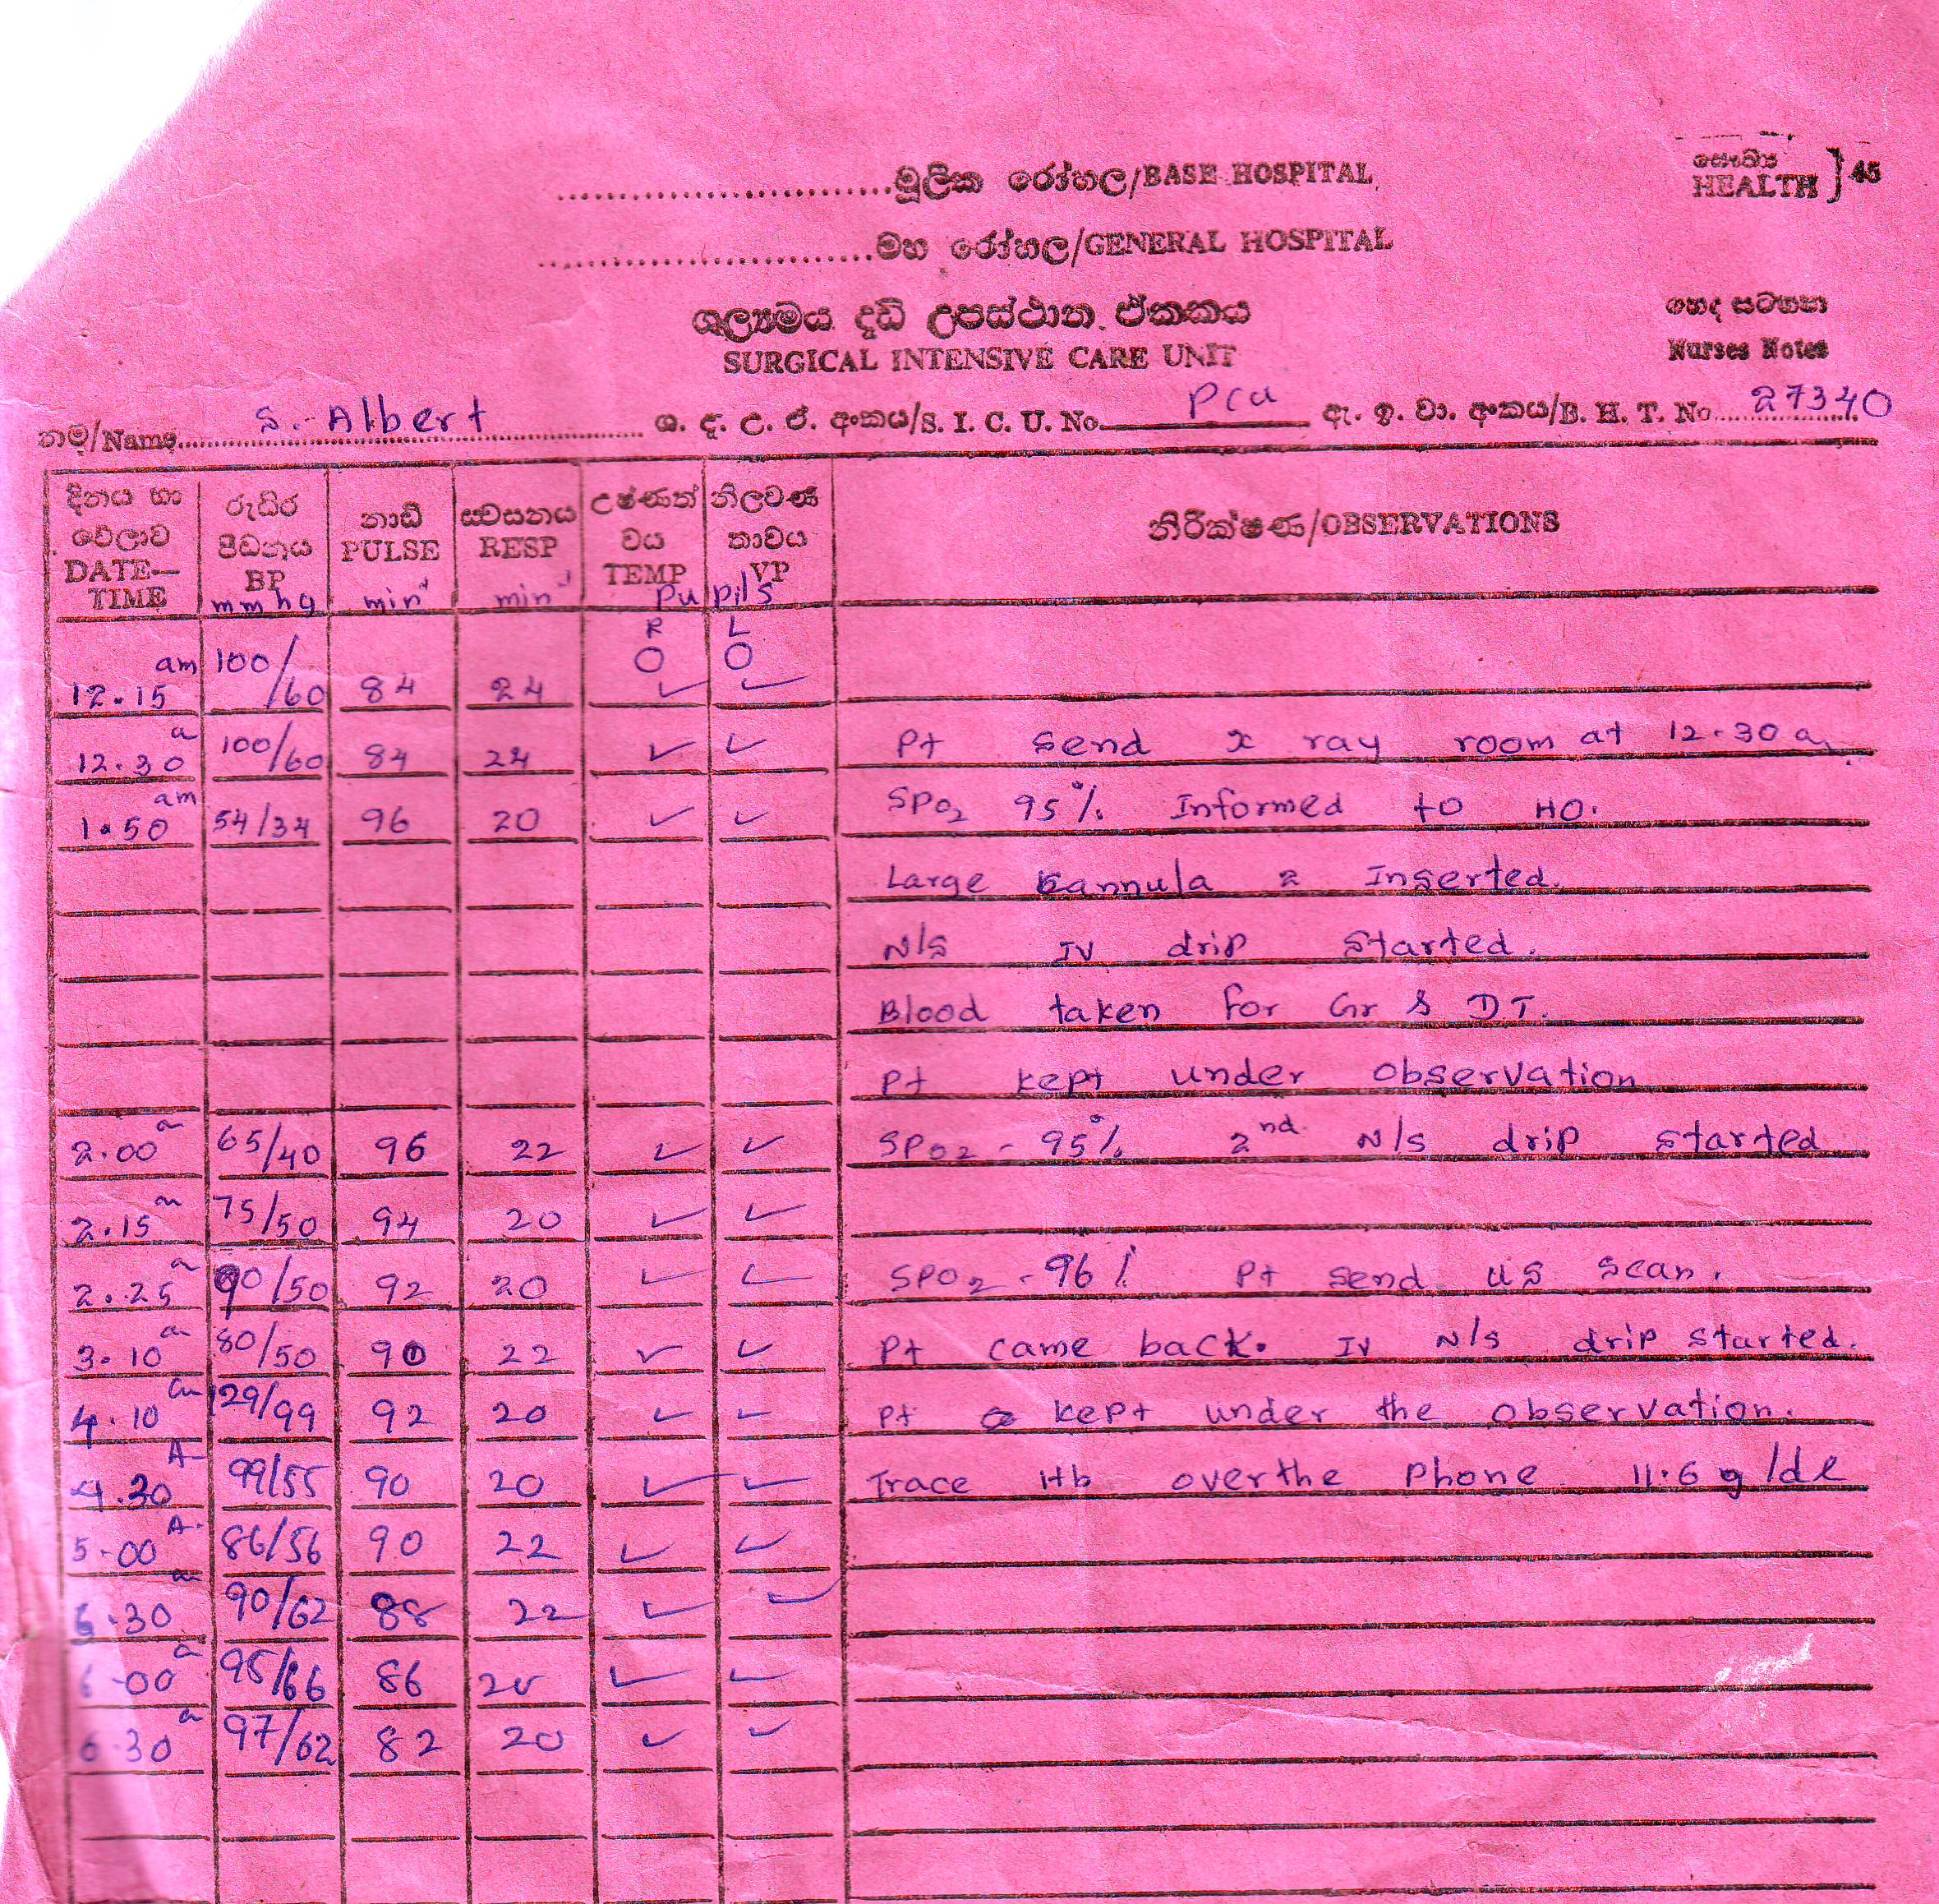 ..............................මූලික රෝහල/BASE HOSPITAL
සෞඛ්‍ය
HEALTH } 45
..............................මහ රෝහල/GENERAL HOSPITAL
ශල්‍යමය දැඩි උපස්ථාන ඒකකය
SURGICAL INTENSIVE CARE UNIT
හෙද සටහන
Nurses Notes
නම/Name S. Albert ශ. දැ. උ. ඒ. අංකය/S. I. C. U. No. PCU ඇ. ඉ. වා. අංකය/B. H. T. No 27340
දිනය හා වේලාව DATE—TIME රුධිර පීඩනය BP mmhg නාඩි PULSE min-1 ස්වසනය RESP min-1 උෂ්ණත්වය TEMP නිලවණතාවය VP Pupils නිරීක්ෂණ/OBSERVATIONS
R L
O O
12.15 am 100/60 84 24 ✓ ✓
12.30 a 100/60 84 24 ✓ ✓ Pt send x ray room at 12.30 a
1.50 am 54/34 96 20 ✓ ✓ SPO2 95% Informed to HO.
Large cannula 2 Inserted.
N/S IV drip started.
Blood taken for Gr & DT.
Pt kept under observation
2.00 a 65/40 96 22 ✓ ✓ SPO2 - 95% 2nd. N/S drip started
2.15 a 75/50 94 20 ✓ ✓
2.25 a 90/50 92 20 ✓ ✓ SPO2 - 96% Pt send US scan.
3.10 a 80/50 90 22 ✓ ✓ Pt came back. IV N/S drip started.
4.10 a 129/99 92 20 ✓ ✓ Pt kept under the observation.
4.30 A 99/55 90 20 ✓ ✓ Trace Hb overthe Phone 11.6 g/dl
5.00 A. 86/56 90 22 ✓ ✓
5.30 a 90/62 88 22 ✓ ✓
6.00 a 95/66 86 20 ✓ ✓
6.30 a 97/62 82 20 ✓ ✓